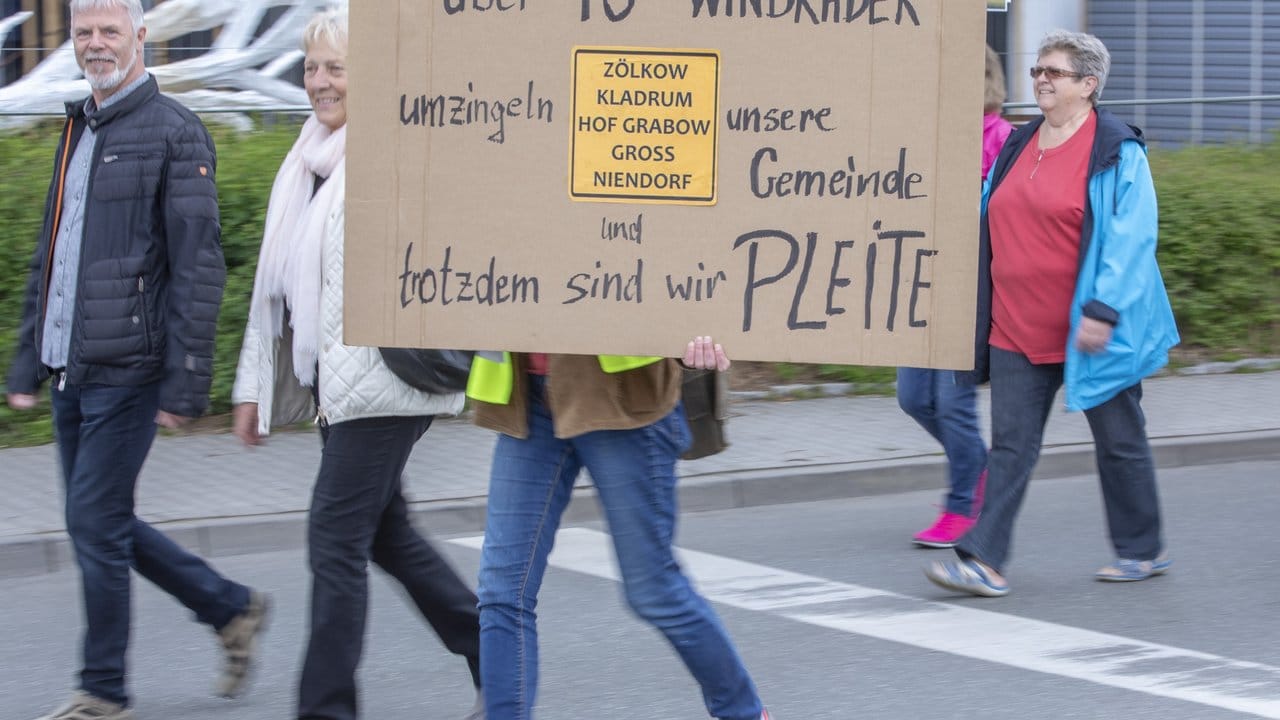 über 70 WINDRÄDER
umzingeln
ZÖLKOW
KLADRUM
HOF GRABOW
GROSS
NIENDORF
unsere
Gemeinde
und
trotzdem sind wir PLEITE